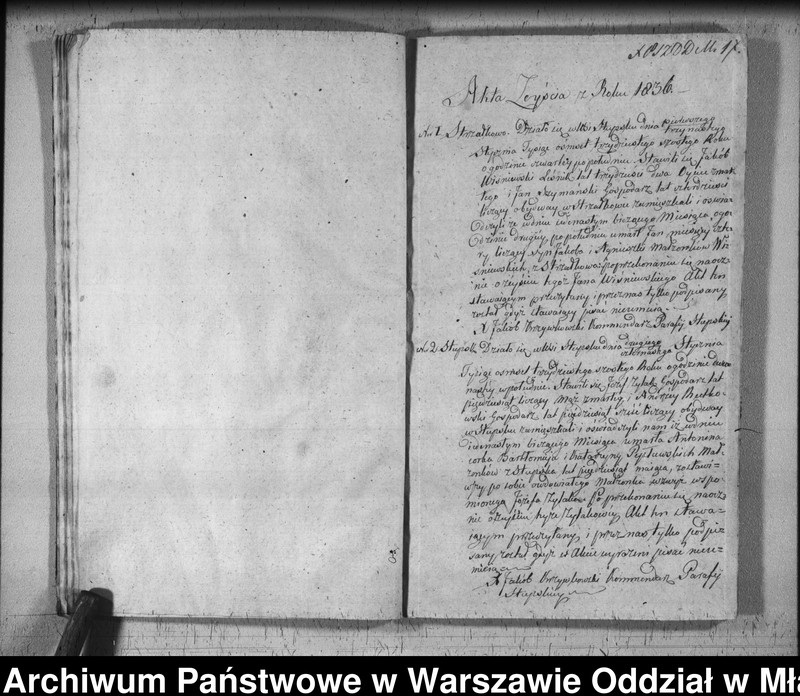 Akta Zeyścia z Roku 1836.
No 1 Strzałkowo. Działo się w Wsi Stupsku dnia pierwszego
trzynastego
Stycznia Tysiąc osmset trzydziestego szostego Roku
o godzinie czwartey po południu. Stawili się Jakób
Wiśniewski lat trzydzieści dwa Oyciec zmar
łego i Jan Szymański Gospodarz lat czterdzieści
liczący obydway w Strzałkowie zamieszkali i oświad
czyli że w dniu iedenastym bieżącego Miesiąca, o go
dzinie drugiey po południu umarł Jan miesięcy czte
ry liczący syn Jakóba i Agnieszki Małżonków Wi
śniewskich, z Strzałkowa po przekonaniu się naocz
nie o zeyściu tegoż Jana Wiśniewskiego Akt ten
stawaiącym przeczytany i przez nas tylko podpisany
został gdyż stawaiący pisać nieumieią
X Jakób Krzyszkowski Kommendarz Parafij Stupskiy
No 2 Stupsk Działo się w Wsi Stupsku dnia drugiego
czternastego Stycznia
Tysiąc osmset trzydziestego szostego Roku o godzinie
w południe. Stawili się Józef Zyłak Gospodarz lat
pięćdziesiąt liczący Mąż zmarłey i Andrzey
Gospodarz lat pięćdziesiąt sześć liczący obydway
w Stupsku zamieszkali i oświadczyli nam iż w dniu
iedenastym bieżącego Miesiąca umarła Antonina
corka Bartłomieja i Katarzyny Mał
żonków z Stupska lat pięćdziesiąt maiąca, zostawi
wszy po sobie owdowiałego Małżonka wzwysz wspo
mnionego Józefa Po przekonaniu się naocz
nie o zeyściu Akt ten stawa
iącym przeczytany i przez nas tylko podpi
sany został gdyż w Akcie wyrażeni pisać nieu
mieią
X Jakób Krzyszkowski Kommendarz Parafij
Stupskiey
Archiwum Państwowe w Warszawie Oddział w Mła